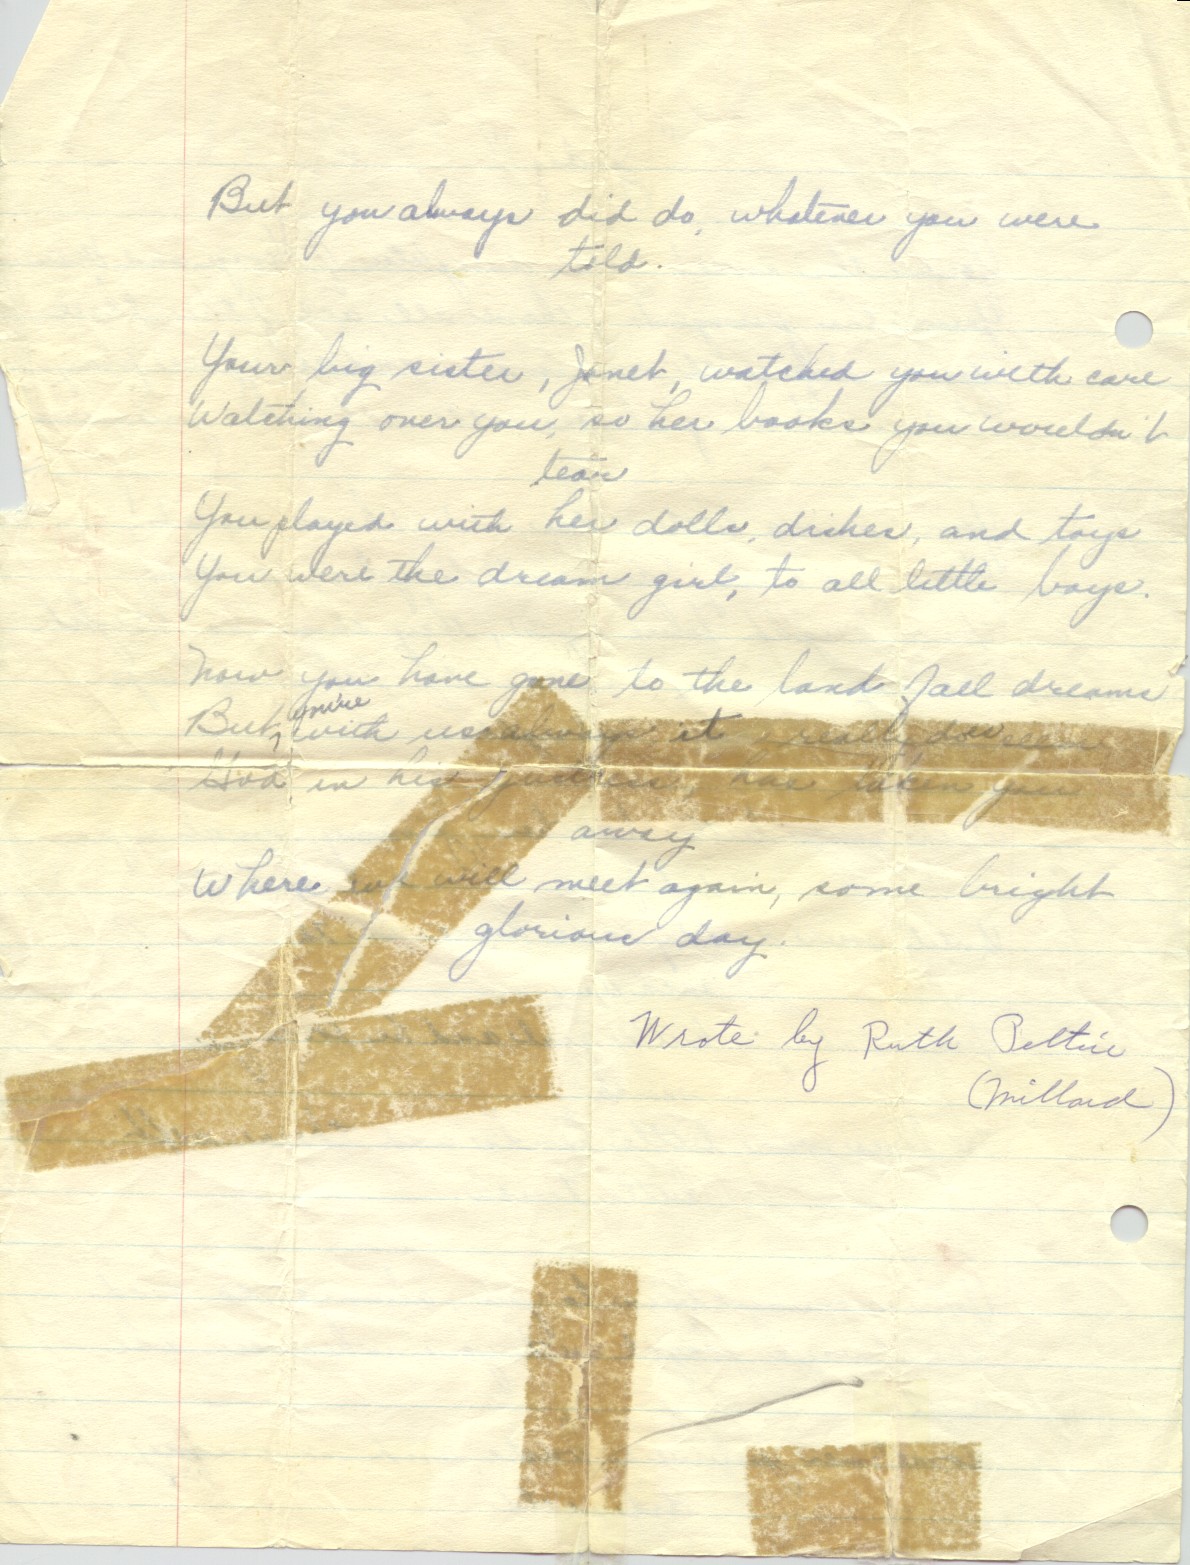 But you always did do, whatever you were
told.
Your big sister, Janet, watched you with care
Watching over you, so her books you wouldn't
tear
You played with her dolls, dishes, and toys
You were the dream girl, to all little boys.
Now you have gone to the land of all dreams
But you're with us always it really does seem
God in his , has taken you
away
Where we will meet again, some bright
glorious day.
Wrote by Ruth
(Millard)